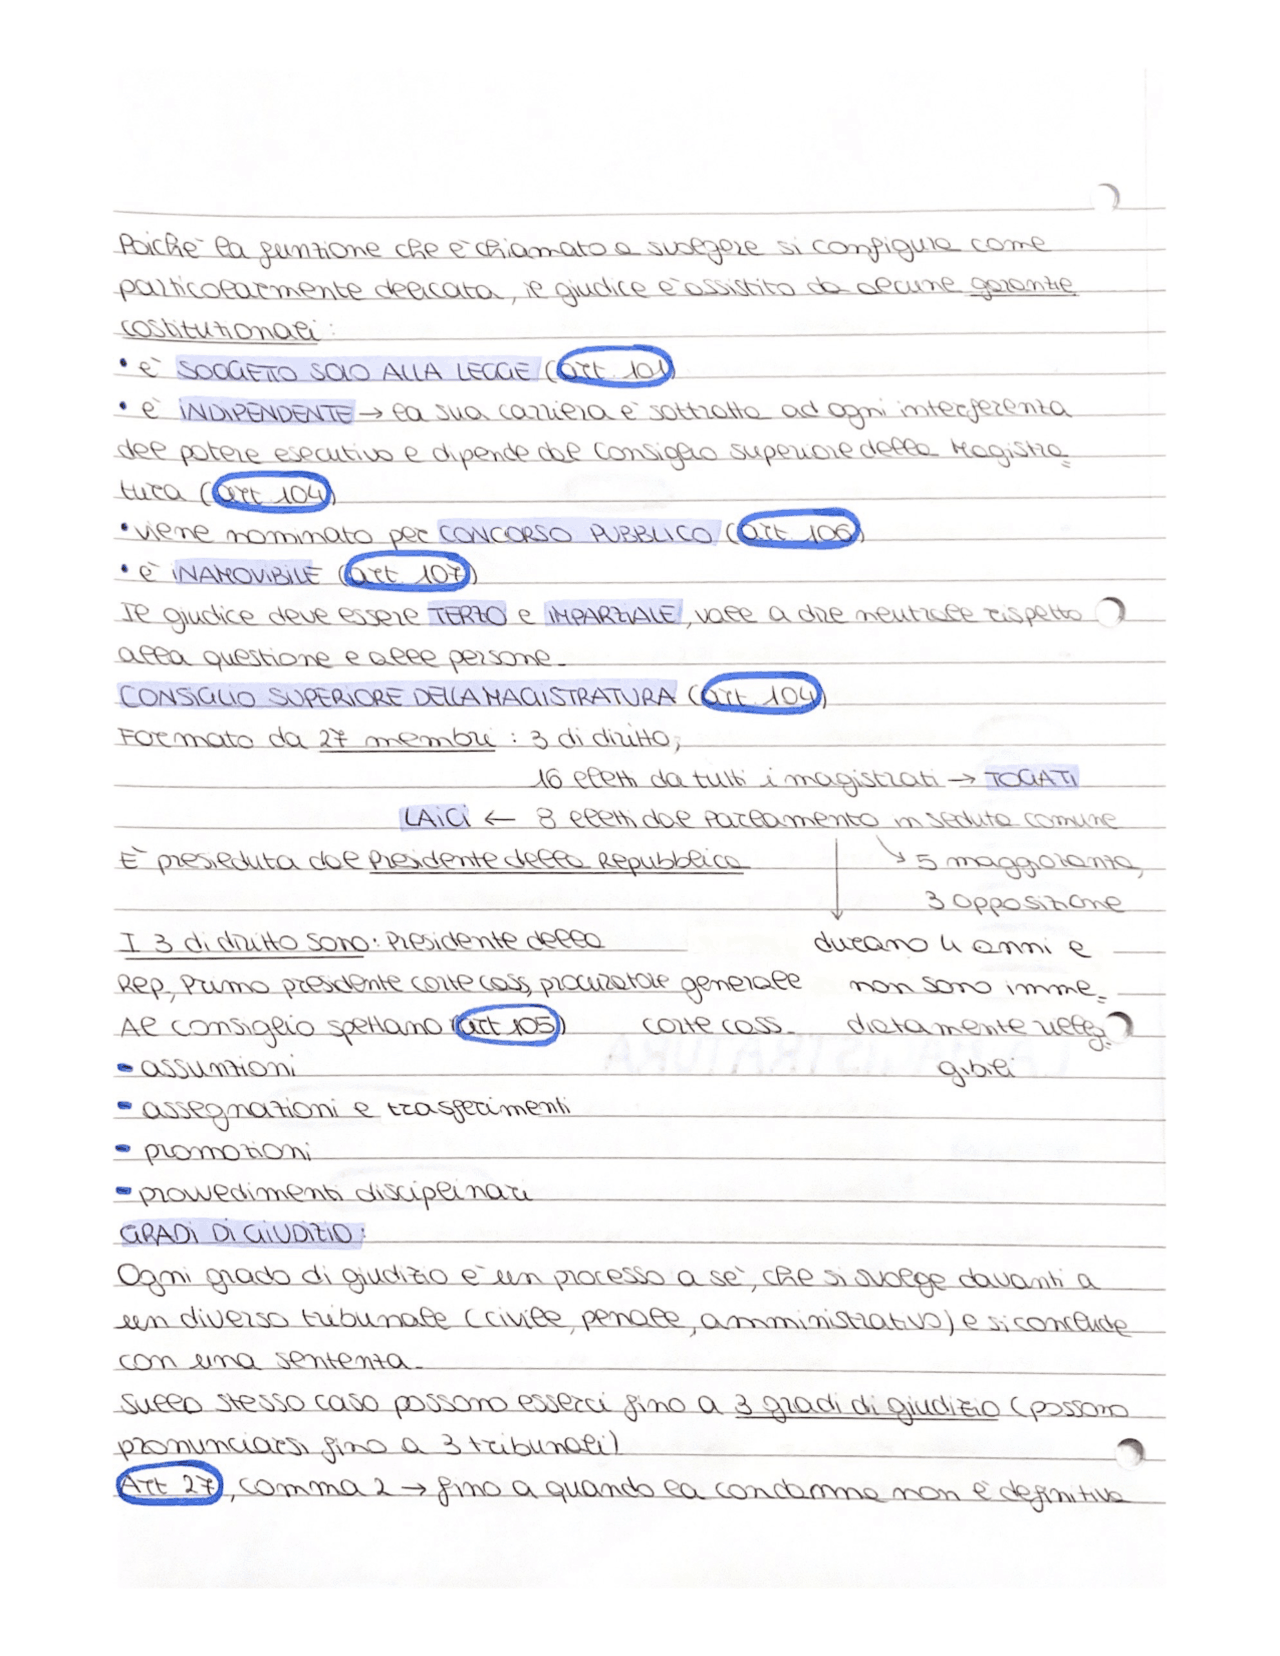 Poichè la funzione che è chiamato a svolgere si configura come
particolarmente delicata, il giudice è assistito da alcune garanzie
costituzionali:
• è SOGGETTO SOLO ALLA LEGGE (art. 101)
• è INDIPENDENTE → la sua carriera è sottratta ad ogni interferenza
del potere esecutivo e dipende dal Consiglio superiore della Magistra=
tura (art 104)
• viene nominato per CONCORSO PUBBLICO (art. 106)
• è INAMOVIBILE (art. 107)
Il giudice deve essere TERZO e IMPARZIALE, vale a dire neutrale rispetto
alla questione e alle persone.
CONSIGLIO SUPERIORE DELLA MAGISTRATURA (art. 104)
Formato da 27 membri : 3 di diritto;
16 eletti da tutti i magistrati → TOGATI
LAICI ← 8 eletti dal Parlamento in seduta comune
È presieduta dal Presidente della Repubblica
5 maggioranza,
3 opposizione
I 3 di diritto sono: Presidente della
Rep, Primo presidente corte cass, procuratore generale
corte cass.
durano 4 anni e
non sono imme=
diatamente rieleg=
gibili
Al consiglio spettano (art 105)
- assunzioni
- assegnazioni e trasferimenti
- promozioni
- provvedimenti disciplinari
GRADI DI GIUDIZIO:
Ogni grado di giudizio è un processo a sè, che si svolge davanti a
un diverso tribunale (civile, penale, amministrativo) e si conclude
con una sentenza.
Sullo stesso caso possono esserci fino a 3 gradi di giudizio (possono
pronunciarsi fino a 3 tribunali)
Art 27, comma 2 → fino a quando la condanna non è definitiva